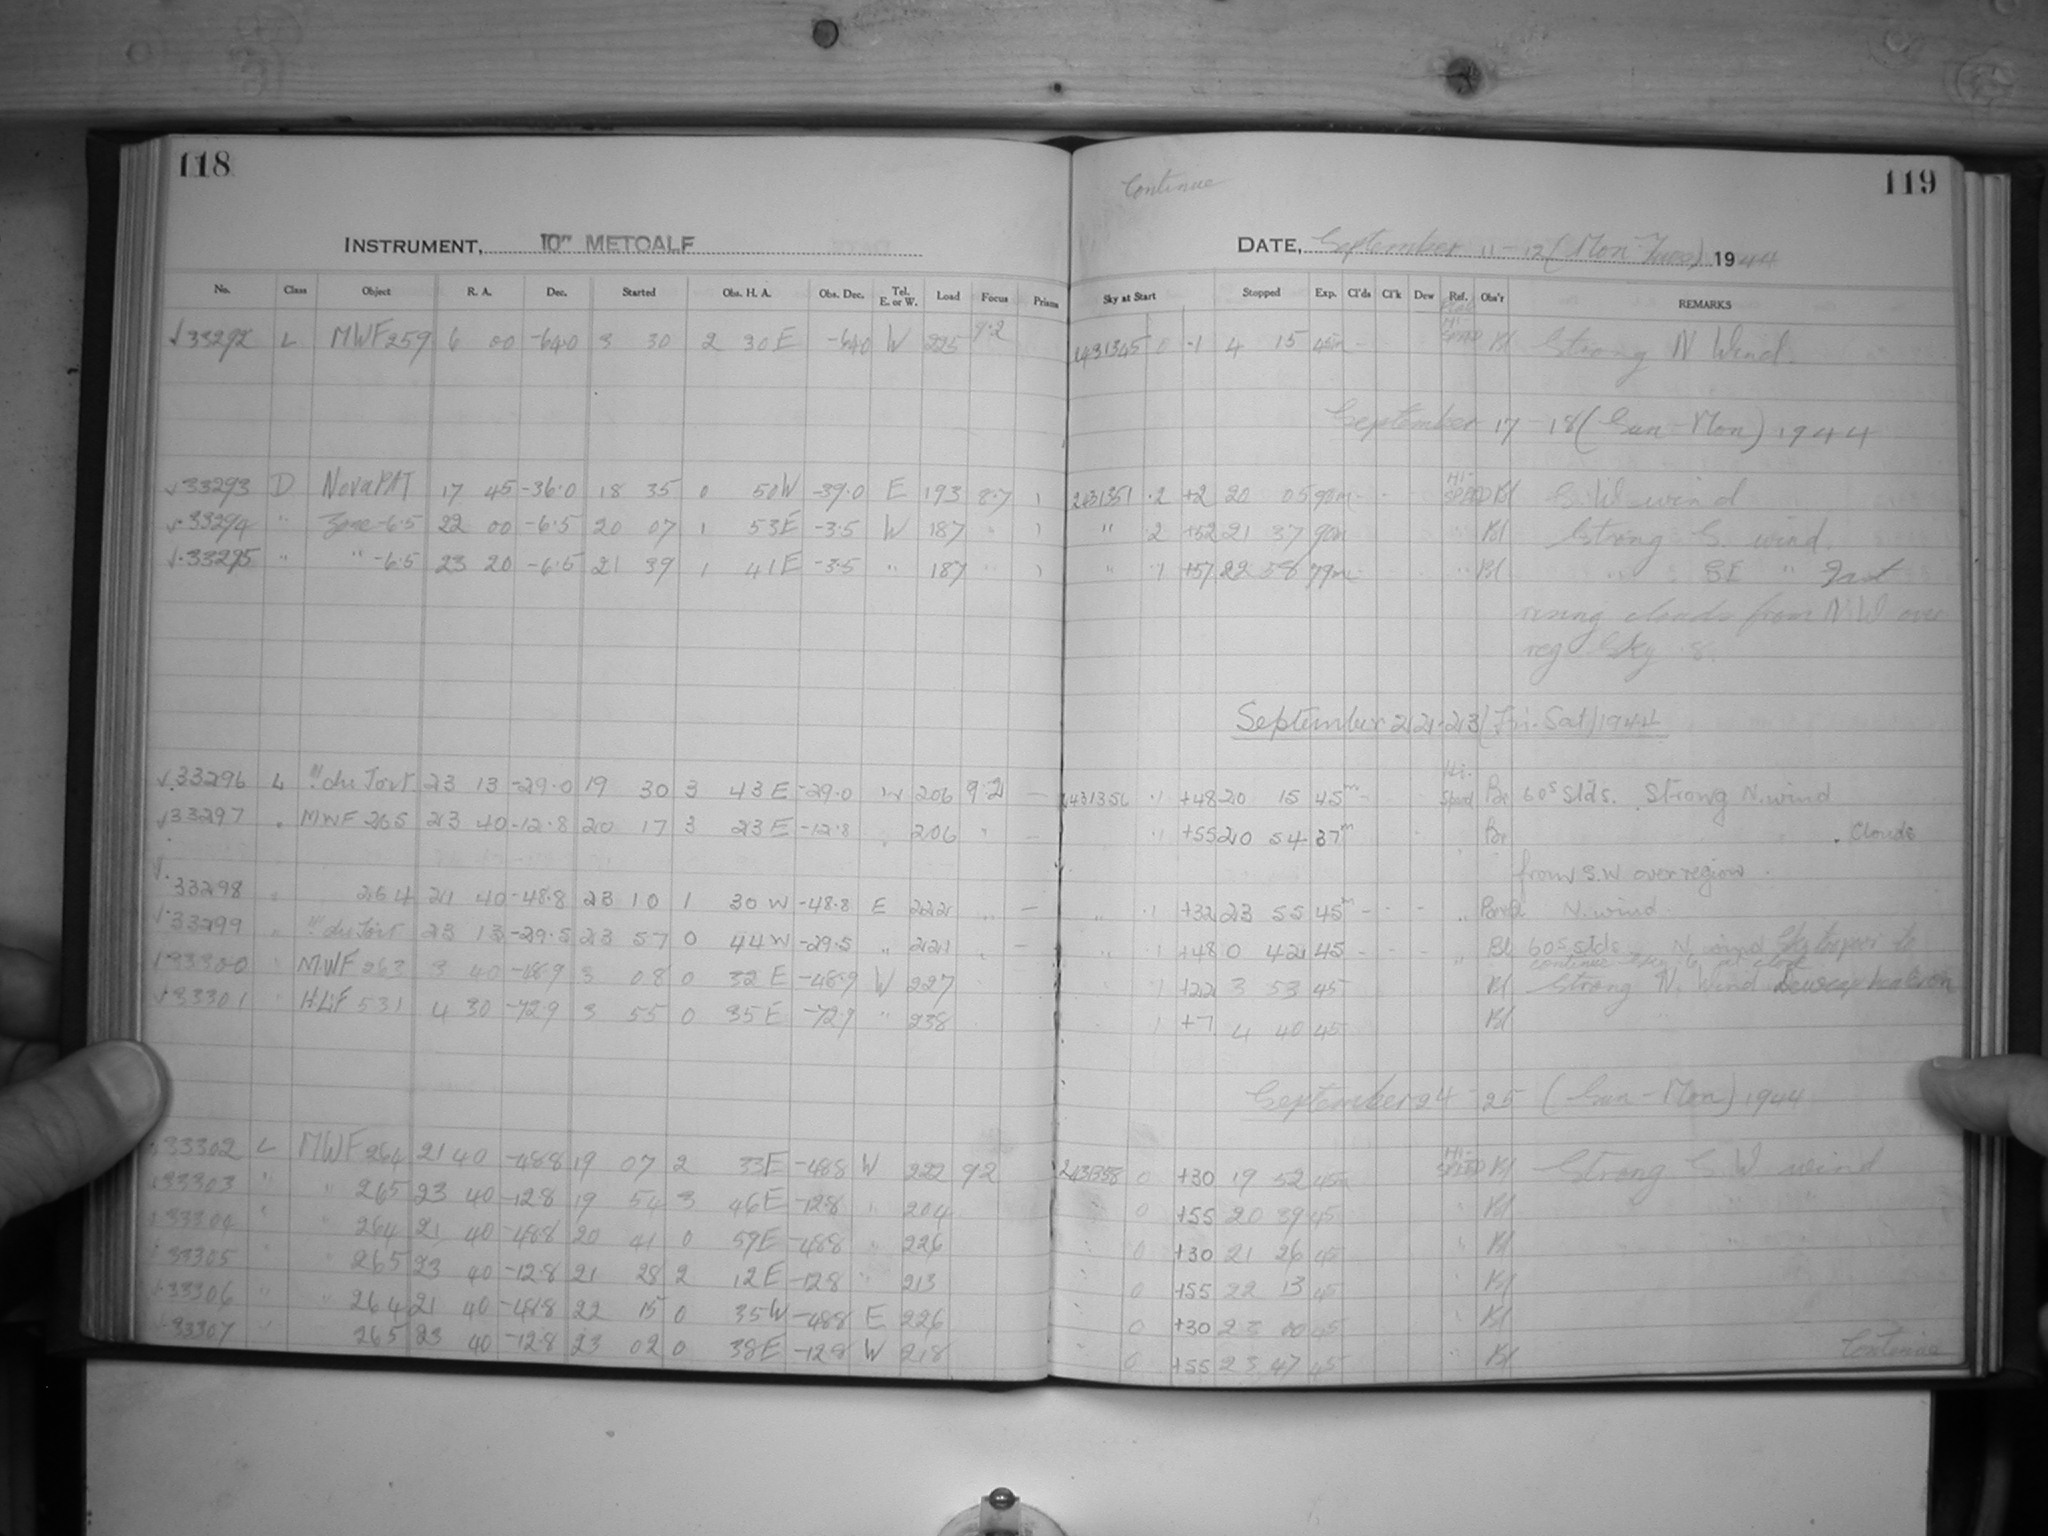 118
INSTRUMENT, 10" METCALF
No. Class Object R. A. Dec. Started Obs. H. A. Obs. Dec. Tel. E. or W. Load Focus Prism
33292 L MWF 259 6 00 -64.0 3 30 2 30 E -64.0 W 225 9.2
33293 D Nova PAT 17 45 -36.0 18 35 0 50 W -39.0 E 193 8.7 1
33294 " Zone -6.5 22 00 -6.5 20 07 1 53 E -3.5 W 187 " 1
33295 " " -6.5 23 20 -6.5 21 39 1 41 E -3.5 " 187 " 1
33296 L du Toit 23 13 -29.0 19 30 3 43 E -29.0 W 206 9.2 -
33297 " MWF 265 23 40 -12.8 20 17 3 23 E -12.8 " 206 " -
33298 " 264 21 40 -48.8 23 10 1 30 W -48.8 E 222 " -
33299 " du Toit 23 13 -29.5 23 57 0 44 W -29.5 " 221 " -
33300 " MWF 263 3 40 -48.9 3 08 0 32 E -48.9 W 227
33301 " HLF 531 4 30 -72.9 3 55 0 35 E -72.9 " 238
33302 L MWF 264 21 40 -48.8 19 07 2 33 E -48.8 W 222 9.2
33303 " " 265 23 40 -12.8 19 54 3 46 E -12.8 " 204
33304 " " 264 21 40 -48.8 20 41 0 59 E -48.8 " 226
33305 " " 265 23 40 -12.8 21 28 2 12 E -12.8 " 213
33306 " " 264 21 40 -48.8 22 15 0 35 W -48.8 E 226
33307 " 265 23 40 -12.8 23 02 0 38 E -12.8 W 218
Continue
119
DATE, September 11-12 (Mon-Tues) 1944
Sky at Start Stopped Exp. Cl'ds Cl'k Dew Ref. Obs'r REMARKS
2431345 0 -1 4 15 45m Hi-SPEED Bl Strong N Wind.
September 17-18 (Sun-Mon) 1944
2431351 .2 +2 20 05 90m Hi-SPEED Bl S.W wind
" 2 +52 21 37 90m Bl Strong S. wind.
" .1 +57 22 58 79m " Bl " S.E " Fast
rising clouds from N.W over
reg. Sky .8.
September 22-23 (Fri-Sat) 1944
2431356 .1 +48 20 15 45m Hi-Speed Br 60s Stds. Strong N. wind
.1 +55 20 54 37m Br " Clouds
from S.W over region.
" .1 +32 23 55 45m - - - " N. wind.
" .1 +48 0 42 45 - - - " Bl 60s Stds N. wind
.1 +22 3 53 45 Bl Strong N. Wind Dewcap heater on
1 +7 4 40 45 Bl
September 24-25 (Sun-Mon) 1944
2431358 0 +30 19 52 45m Hi-SPEED Bl Strong S.W wind
" 0 +55 20 39 45 " Bl " "
" 0 +30 21 26 45 " Bl "
" 0 +55 22 13 45 Bl
" 0 +30 23 00 45 " Bl
" 0 +55 23 47 45 " Bl
Continue